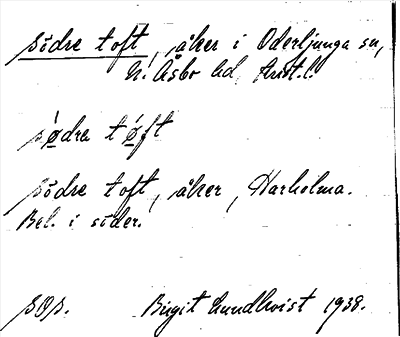 södre toft, åker i Oderljunga sn,
N. Åsbo hd, Krist. l.
södra tóft
södre toft, åker, Harholma.
Bel. i söder.
Birgit Lundkvist 1938.